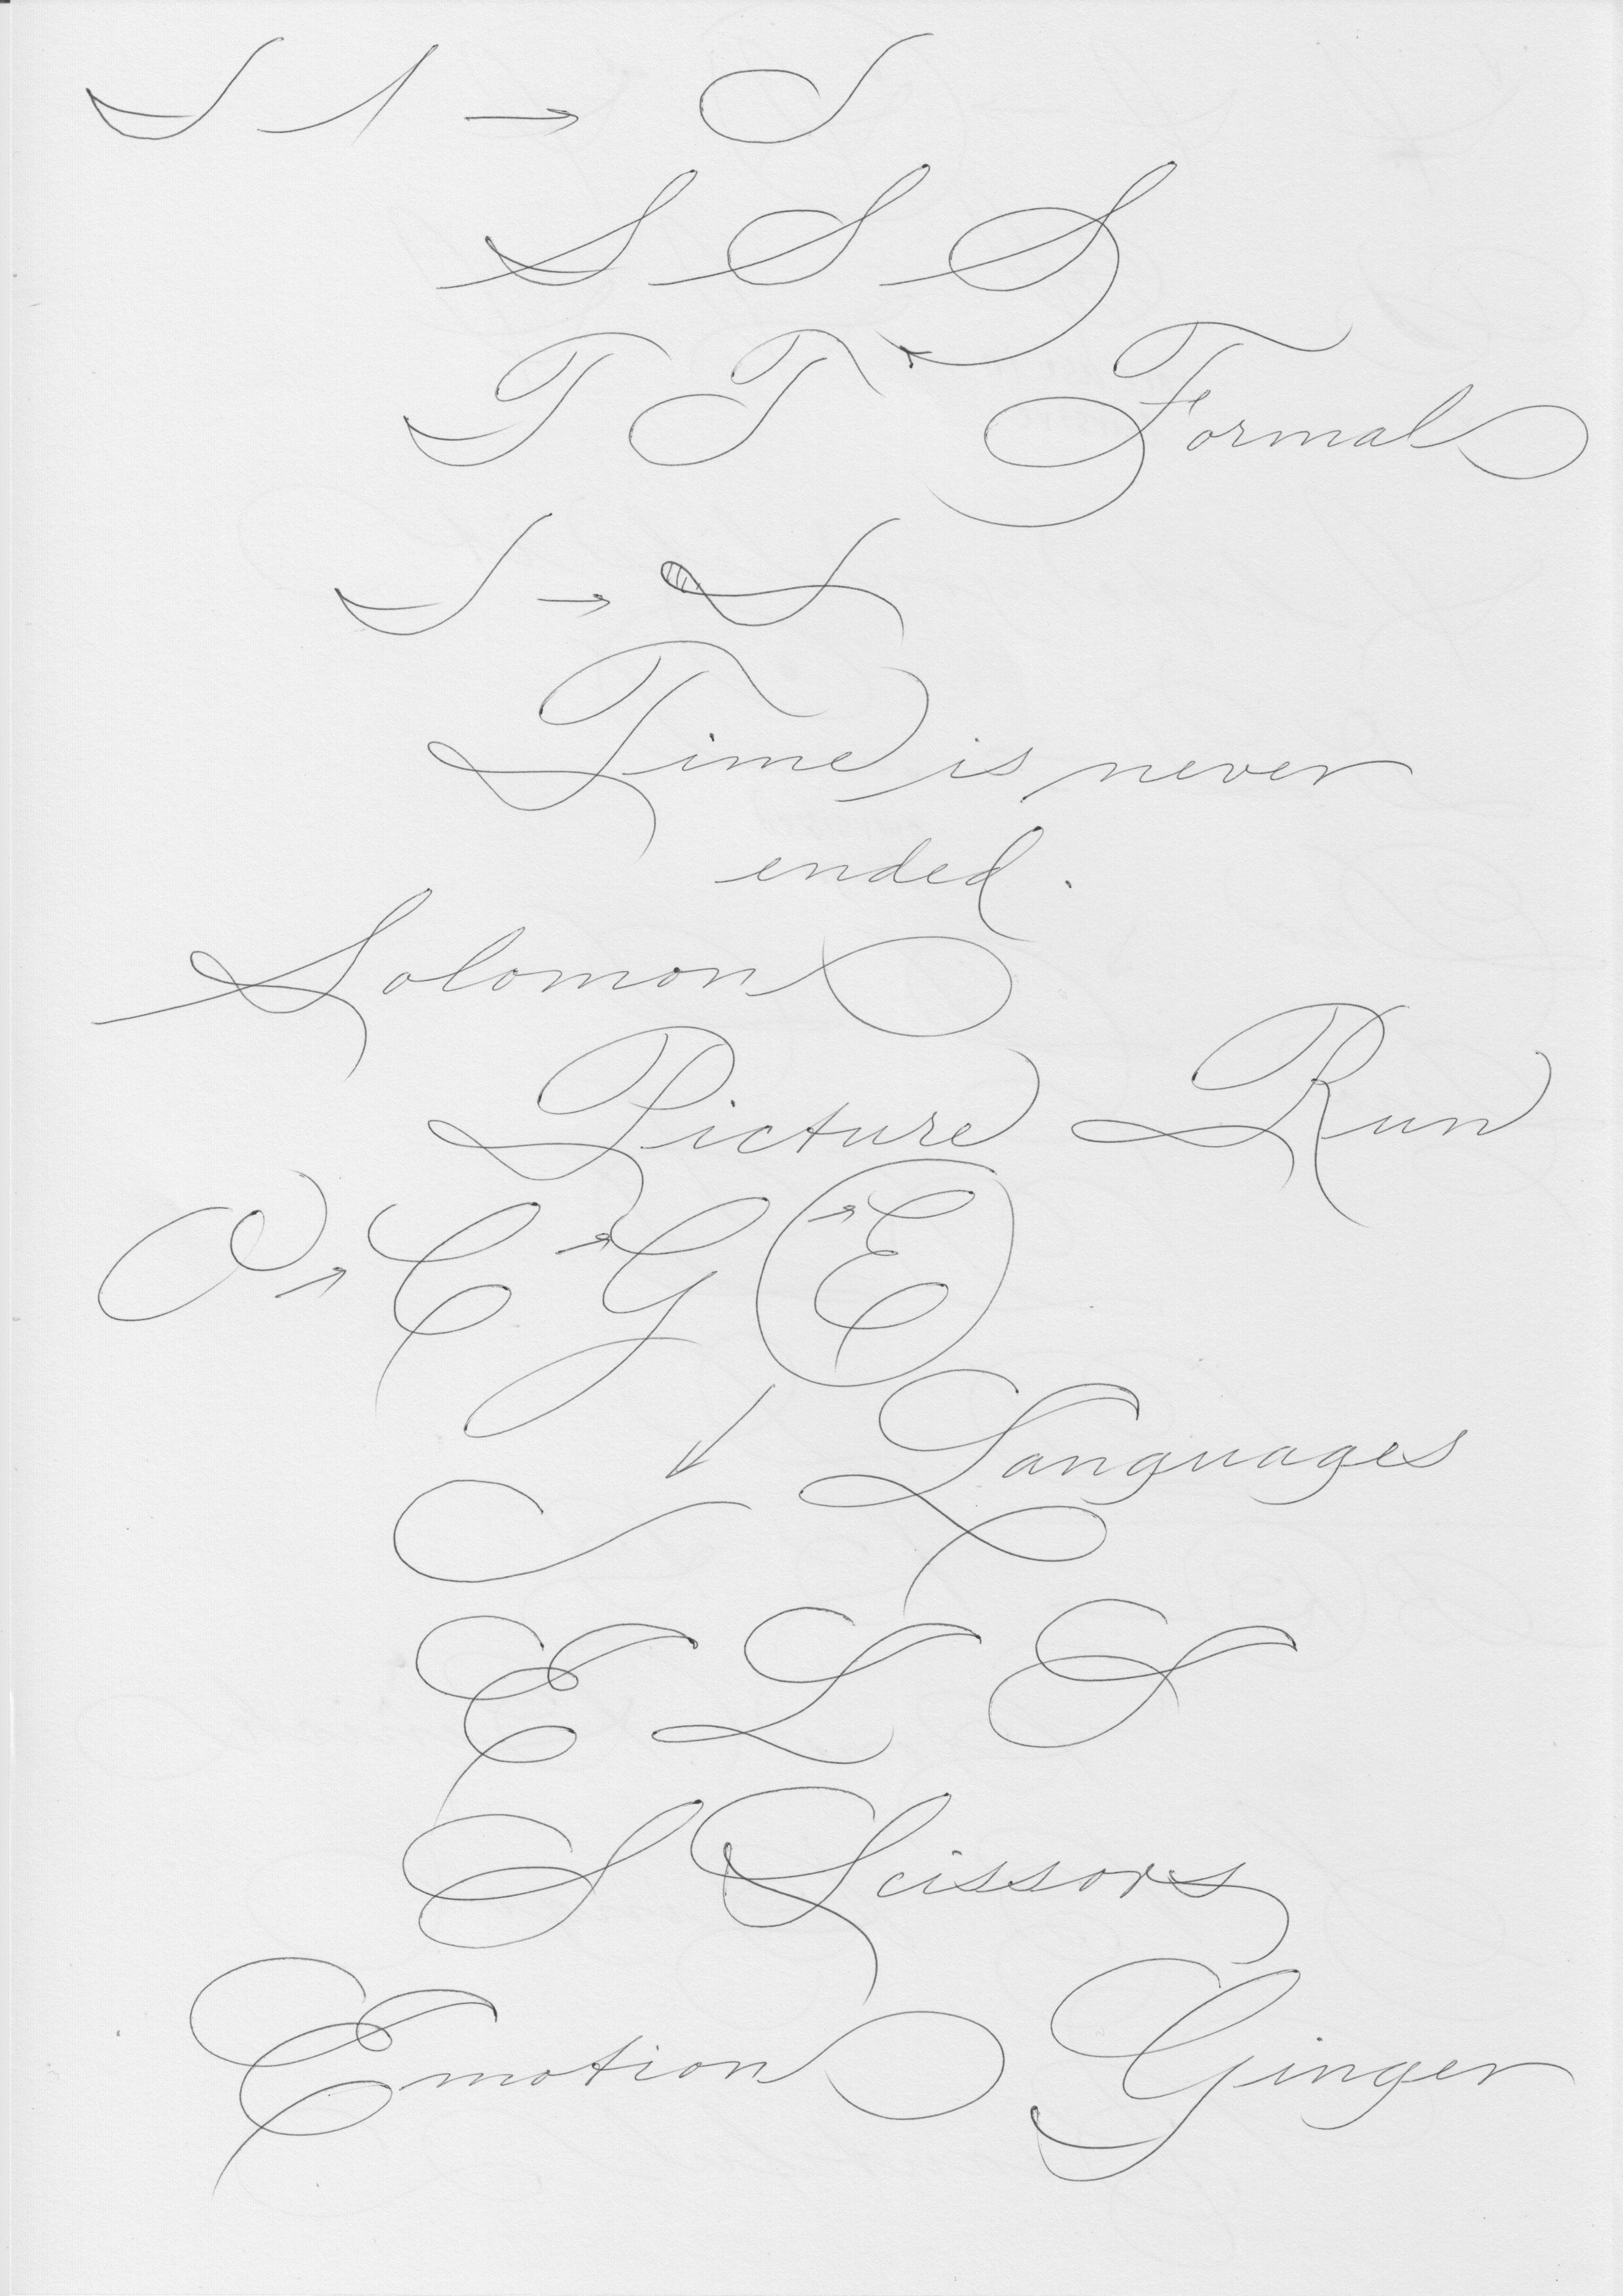 S S S
T T Formal
Time is never
ended.
Solomon
Picture Run
C G E
Languages
E L S
S Scissors
Emotion Ginger